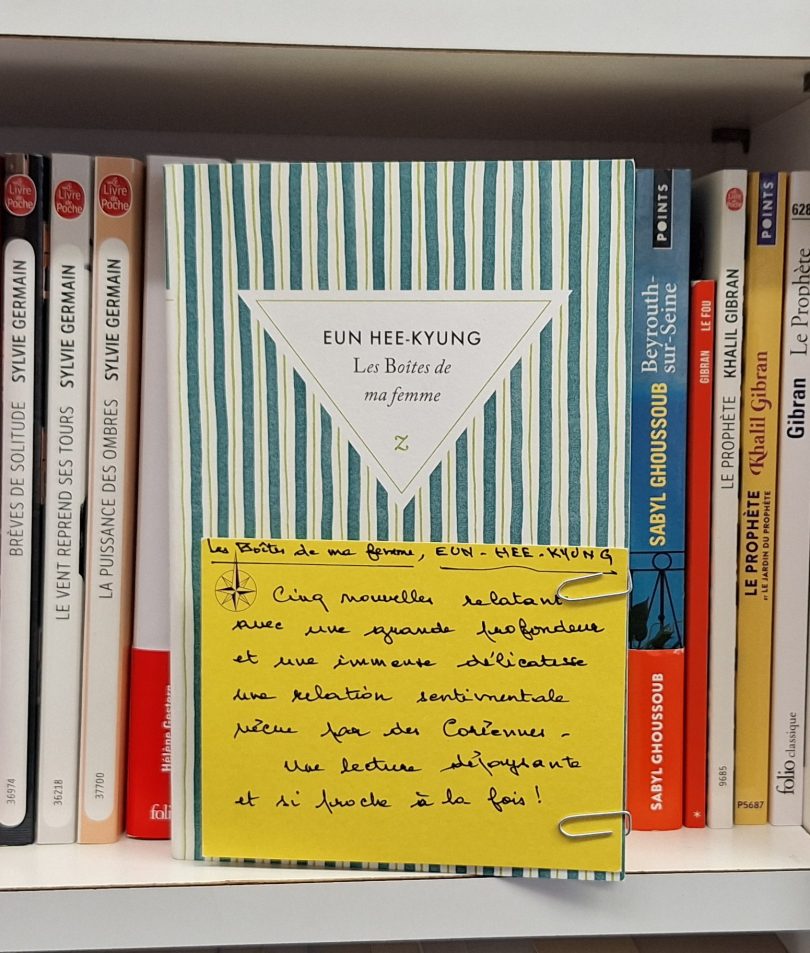 Le Livre de Poche
BRÈVES DE SOLITUDE SYLVIE GERMAIN
36974
Le Livre de Poche
LE VENT REPREND SES TOURS SYLVIE GERMAIN
36218
Le Livre de Poche
LA PUISSANCE DES OMBRES SYLVIE GERMAIN
37700
Hélène Gestern
EUN HEE-KYUNG
Les Boîtes de
ma femme
Z
Les Boîtes de ma femme, EUN-HEE-KYUNG
Cinq nouvelles relatant
avec une grande profondeur
et une immense délicatesse
une relation sentimentale
vécue par des Coréennes -
Une lecture dépaysante
et si proche à la fois !
POINTS
SABYL GHOUSSOUB Beyrouth-
sur-Seine
SABYL GHOUSSOUB
GIBRAN LE FOU
LE PROPHÈTE KHALIL GIBRAN
9685
POINTS
LE PROPHÈTE Khalil Gibran
ET LE JARDIN DU PROPHÈTE
P5687
628
Gibran Le Prophète
folio classique